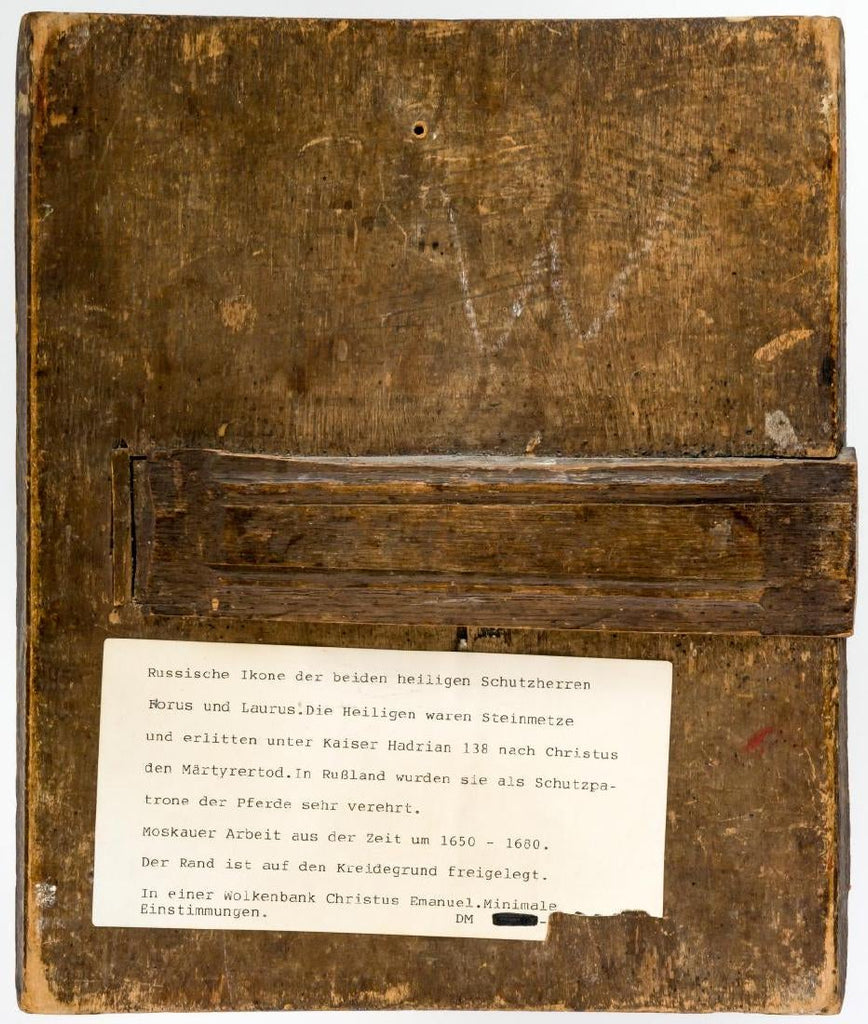 W
Russische Ikone der beiden heiligen Schutzherren
Florus und Laurus.Die Heiligen waren Steinmetze
und erlitten unter Kaiser Hadrian 138 nach Christus
den Märtyrertod.In Rußland wurden sie als Schutzpa-
trone der Pferde sehr verehrt.
Moskauer Arbeit aus der Zeit um 1650 - 1680.
Der Rand ist auf den Kreidegrund freigelegt.
In einer Wolkenbank Christus Emanuel.Minimale
Einstimmungen. DM -